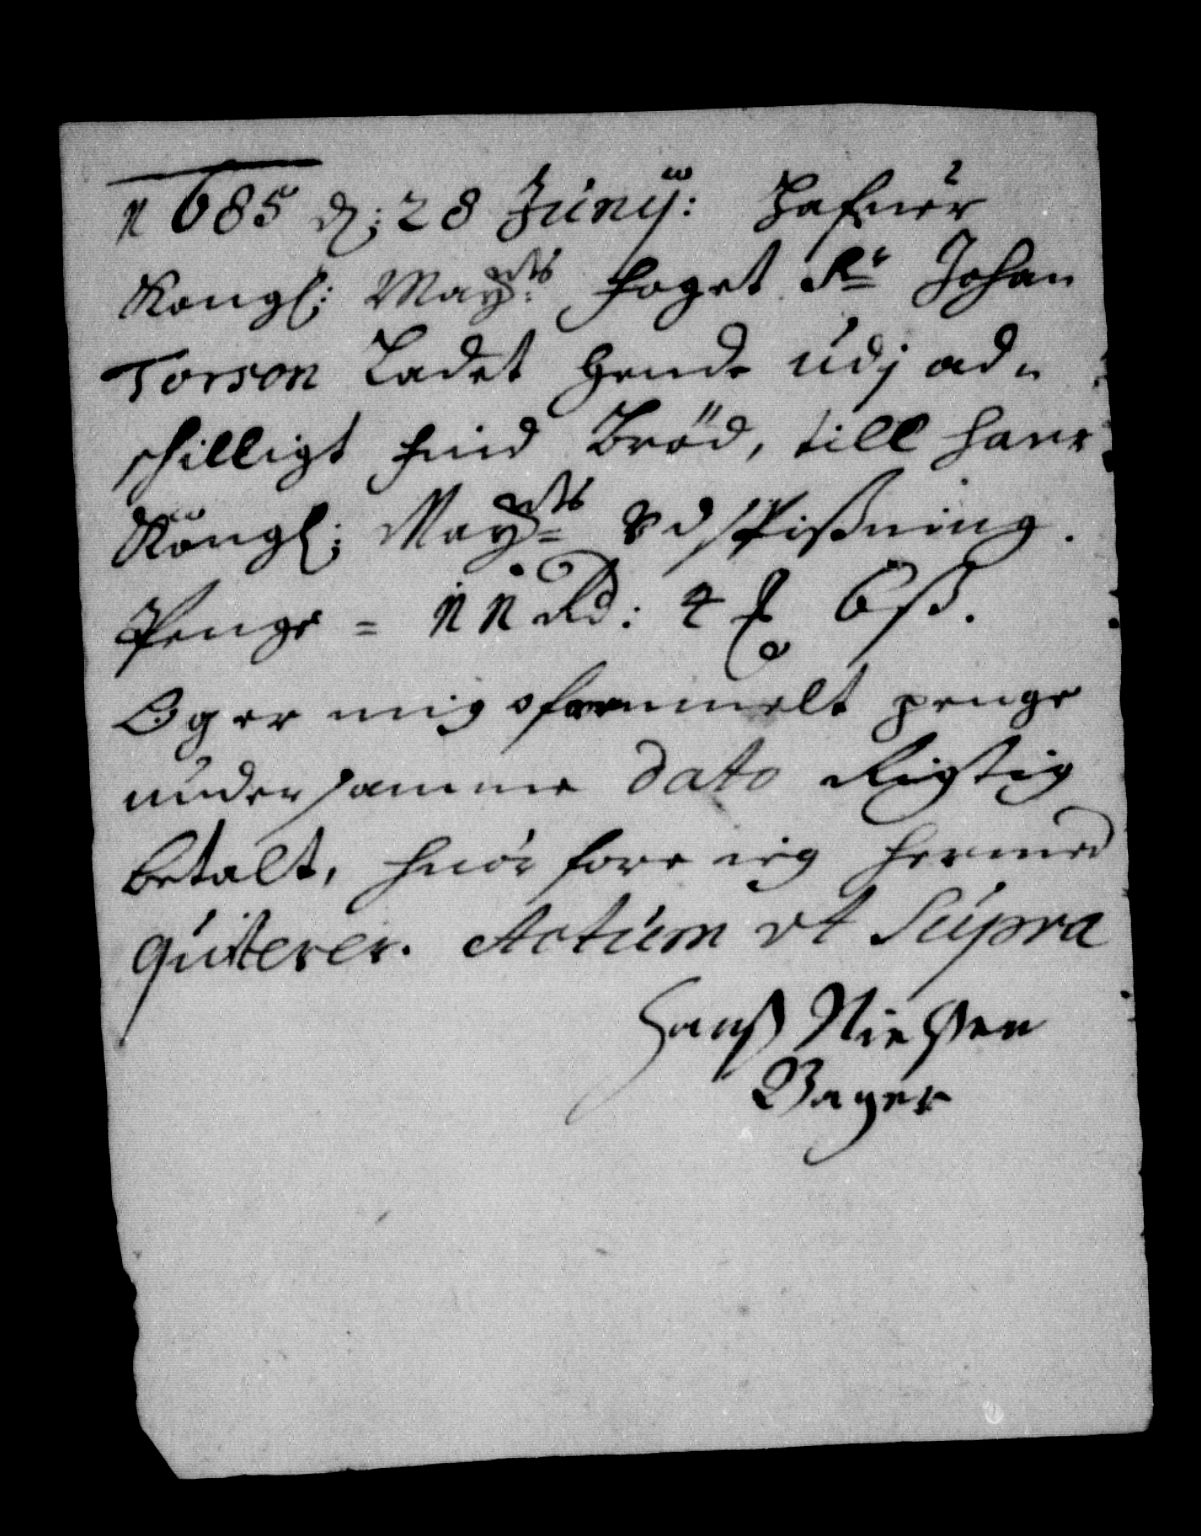 1685 d: 28 Junij: Hafuer
Kongl: May:ts foget Sr Johan
Torson Ladet hende udj ad-
schilligt huid Brød, till hans
Kongl: May:ts Udspißning.
Penge = 11 Rd: 4 ℔ 6 ß.
Og er mig ofuenmelt penge
under samme dato Rigtig
betalt, huor fore ieg hermed
quiterer. Actum ut Supra
Hanß Nielßen
Bager